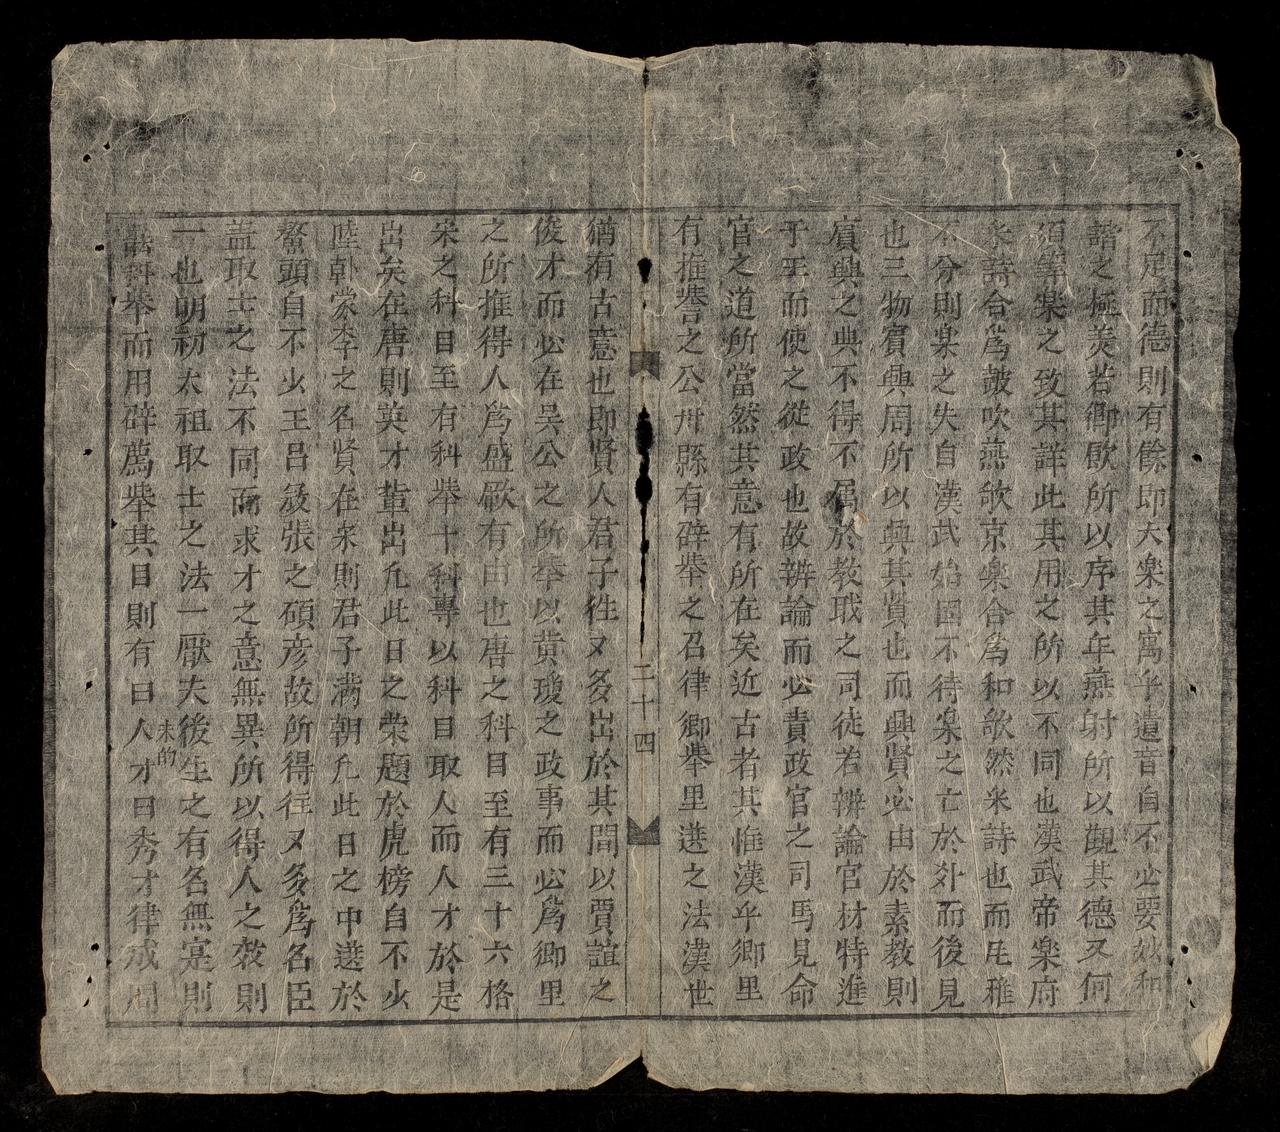 不足而德則有餘即大樂之寓乎遺音自不必要妙和
諧之極羙若御歐所以序其年燕射所以觀其德又何
須等樂之致其詳此其用之所以不同也漢武帝樂府
采詩合爲皷吹燕歆京樂合爲和歆然采詩也而庀雅
不分則樂之失自漢武始固不待梁之亡於外而後見
也三物賓興周所以興其賢也而興賢必由於素教則
賔興之典不得不属於教戢之司徒若辨論官材特進
于王而使之從政也故辨論而必責政官之司馬見命
官之道所當然其意有所在矣近古者其惟漢乎鄉里
有推譽之公州縣有辟舉之召律鄉舉里選之法漢世
二十四
猶有古意也即賢人君子徃又多出於其間以賈誼之
俊才而必在吴公之所舉以黄瓊之政事而必爲鄉里
之所推得人爲盛厥有由也唐之科目至有三十六格
宋之科目至有科舉十科專以科目取人而人才於是
出矣在唐則英才輩出凡此日之荣題於虎榜自不少
陸韩裳李之名賢在宋則君子满朝凡此日之中選於
鰲頭自不少王吕冦張之碩彦故所得往又多爲名臣
盖取士之法不同而求才之意無異所以得人之效則
一也明初太祖取士之法一厭夫後生之有名無寔則
詔科舉而用辟薦舉其目則有曰人才曰秀才律成周
未的